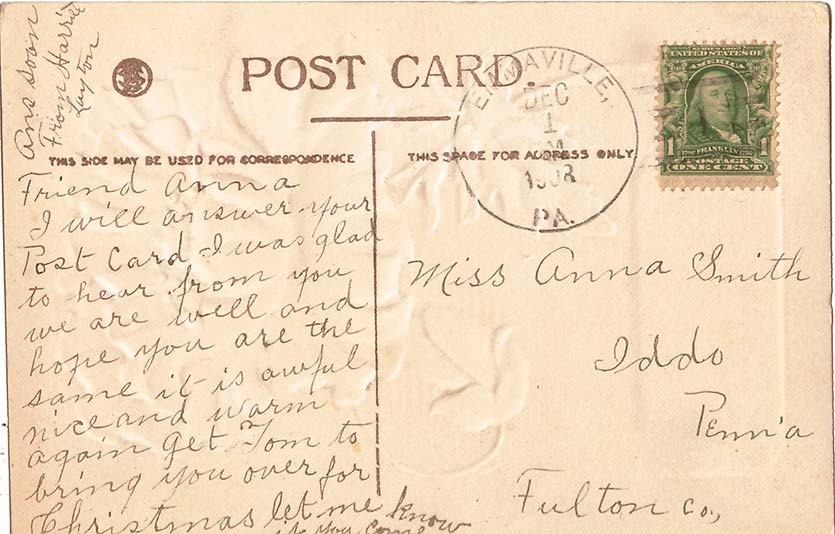 POST CARD.
THIS SIDE MAY BE USED FOR CORRESPONDENCE
THIS SPACE FOR ADDRESS ONLY.
EMMAVILLE,
DEC
1
M
1908
PA.
SERIES 1902
UNITED STATES OF
AMERICA
1 FRANKLIN 1
POSTAGE
ONE CENT
Ans soon
From Harrie
Layton
Friend Anna
I will answer your
Post Card I was glad
to hear from you
we are well and
hope you are the
same it is awful
nice and warm
again get Tom to
bring you over for
Christmas let me know
if you come
Miss Anna Smith
Iddo
Penn'a
Fulton Co.,